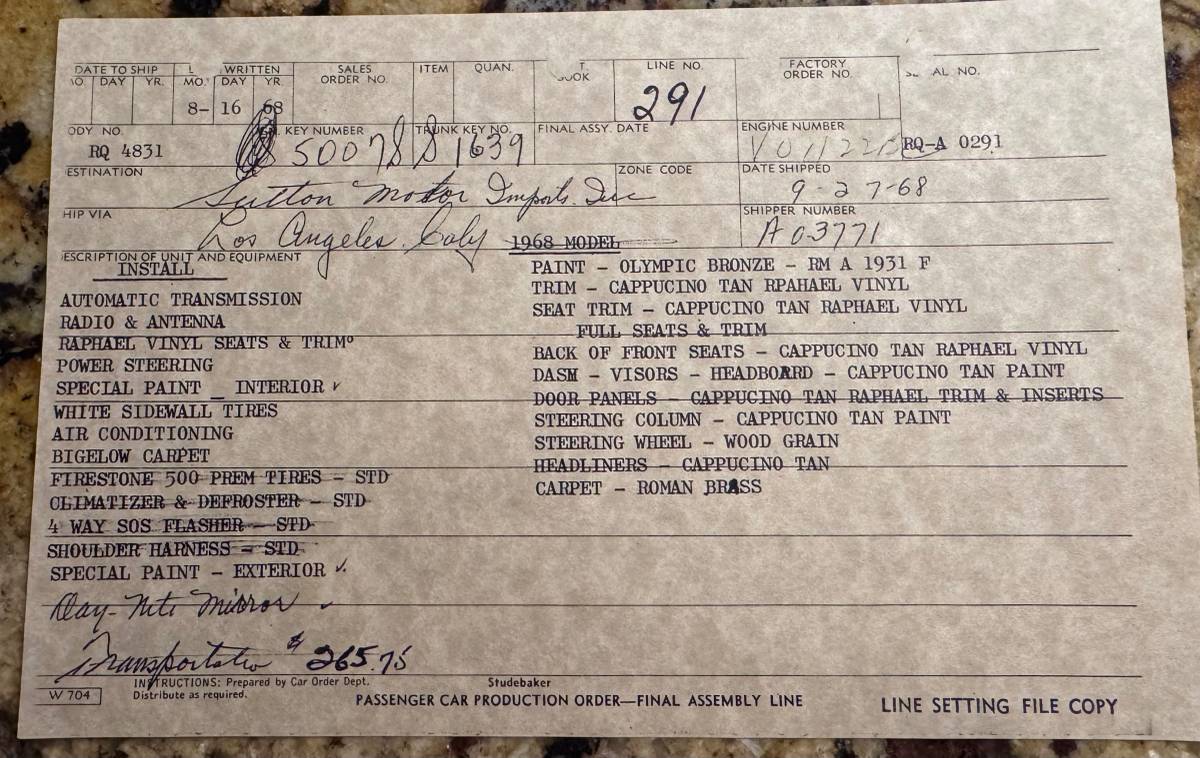 DATE TO SHIP WRITTEN SALES ORDER NO. ITEM QUAN. LINE NO. FACTORY ORDER NO. AL NO.
DAY YR. MO. DAY YR.
8- 16 68 291
ODY NO. KEY NUMBER TRUNK KEY NO. FINAL ASSY. DATE ENGINE NUMBER
RQ 4831 50078 S1639 RQ-A 0291
ESTINATION ZONE CODE DATE SHIPPED
Sutton Motor Imports. Inc 9-27-68
HIP VIA SHIPPER NUMBER
Los Angeles. Caly 1968 MODEL A03771
ESCRIPTION OF UNIT AND EQUIPMENT
INSTALL PAINT - OLYMPIC BRONZE - RM A 1931 F
TRIM - CAPPUCINO TAN RPAHAEL VINYL
AUTOMATIC TRANSMISSION SEAT TRIM - CAPPUCINO TAN RAPHAEL VINYL
RADIO & ANTENNA FULL SEATS & TRIM
RAPHAEL VINYL SEATS & TRIM BACK OF FRONT SEATS - CAPPUCINO TAN RAPHAEL VINYL
POWER STEERING DASH - VISORS - HEADBOARD - CAPPUCINO TAN PAINT
SPECIAL PAINT _ INTERIOR ✓ DOOR PANELS - CAPPUCINO TAN RAPHAEL TRIM & INSERTS
WHITE SIDEWALL TIRES STEERING COLUMN - CAPPUCINO TAN PAINT
AIR CONDITIONING STEERING WHEEL - WOOD GRAIN
BIGELOW CARPET HEADLINERS - CAPPUCINO TAN
FIRESTONE 500 PREM TIRES - STD CARPET - ROMAN BRASS
CLIMATIZER & DEFROSTER - STD
4 WAY SOS FLASHER - STD
SHOULDER HARNESS - STD
SPECIAL PAINT - EXTERIOR ✓
Day-Nite Mirror ✓
Transportatio $265.75
INSTRUCTIONS: Prepared by Car Order Dept. Studebaker
W 704 Distribute as required. PASSENGER CAR PRODUCTION ORDER—FINAL ASSEMBLY LINE LINE SETTING FILE COPY